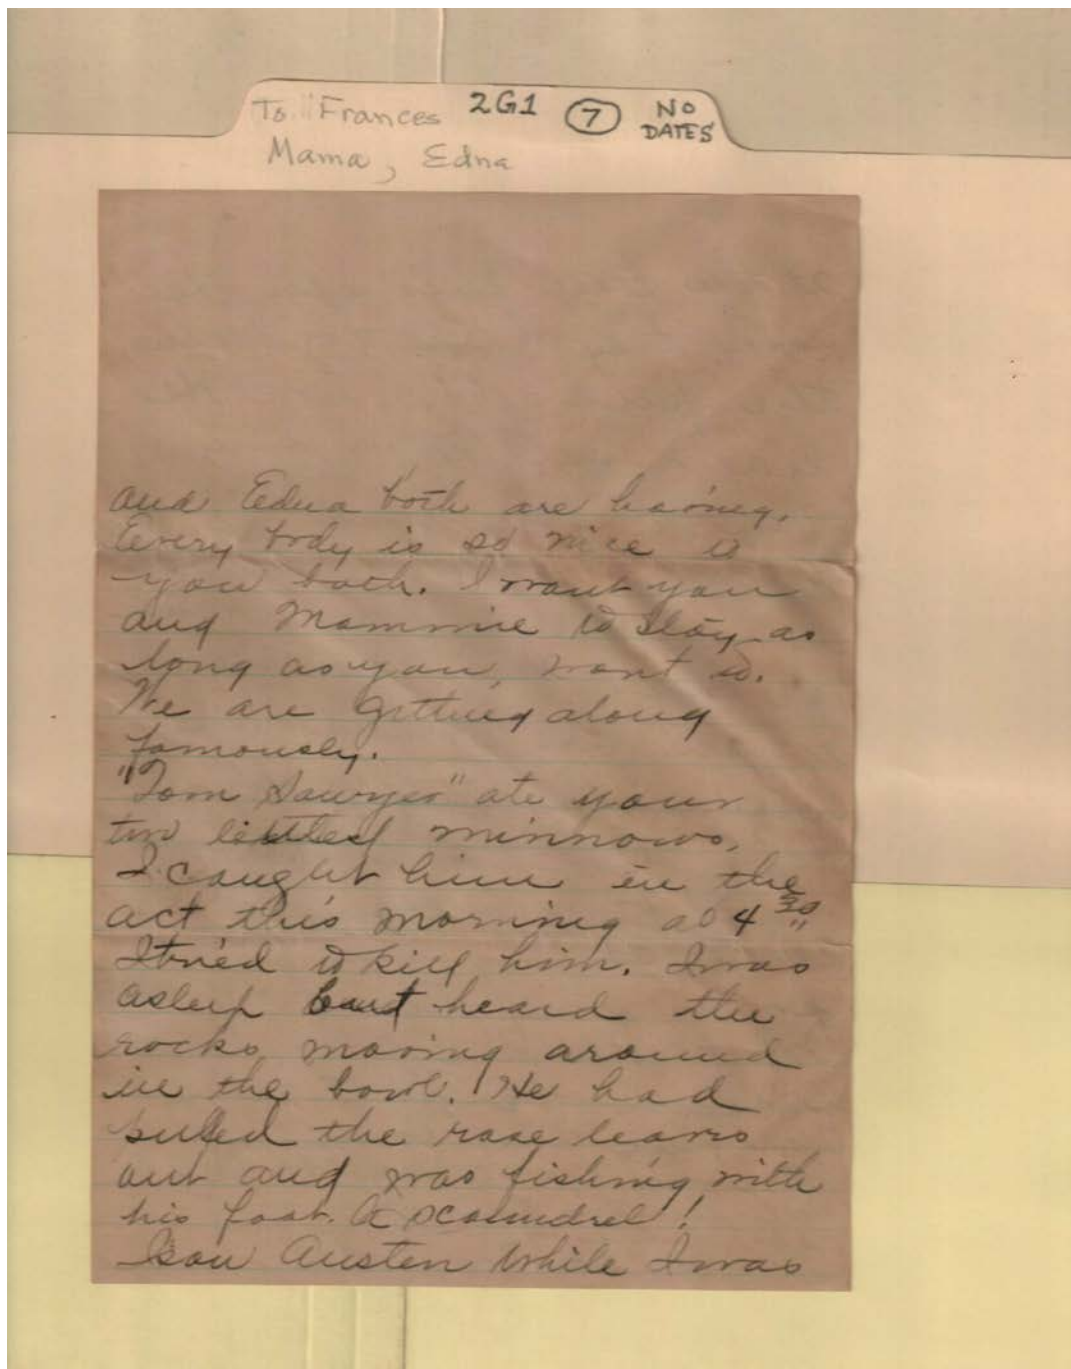 To Frances 2G1 7 NO DATES
Mama, Edna
and Edna both are having.
Every body is so nice to
you both. I want you
and Mommie to stay as
long as you, want to.
We are getting along
famously.
"Tom Sawyer" ate your
two little minnows.
I caught him in the
act this morning at 4 30
I tried to kill him. I was
asleep but heard the
rocks moving around
in the bowl. He had
pulled the rose leaves
out and was fishing with
his foot. A scoundrel!
Austen while I was